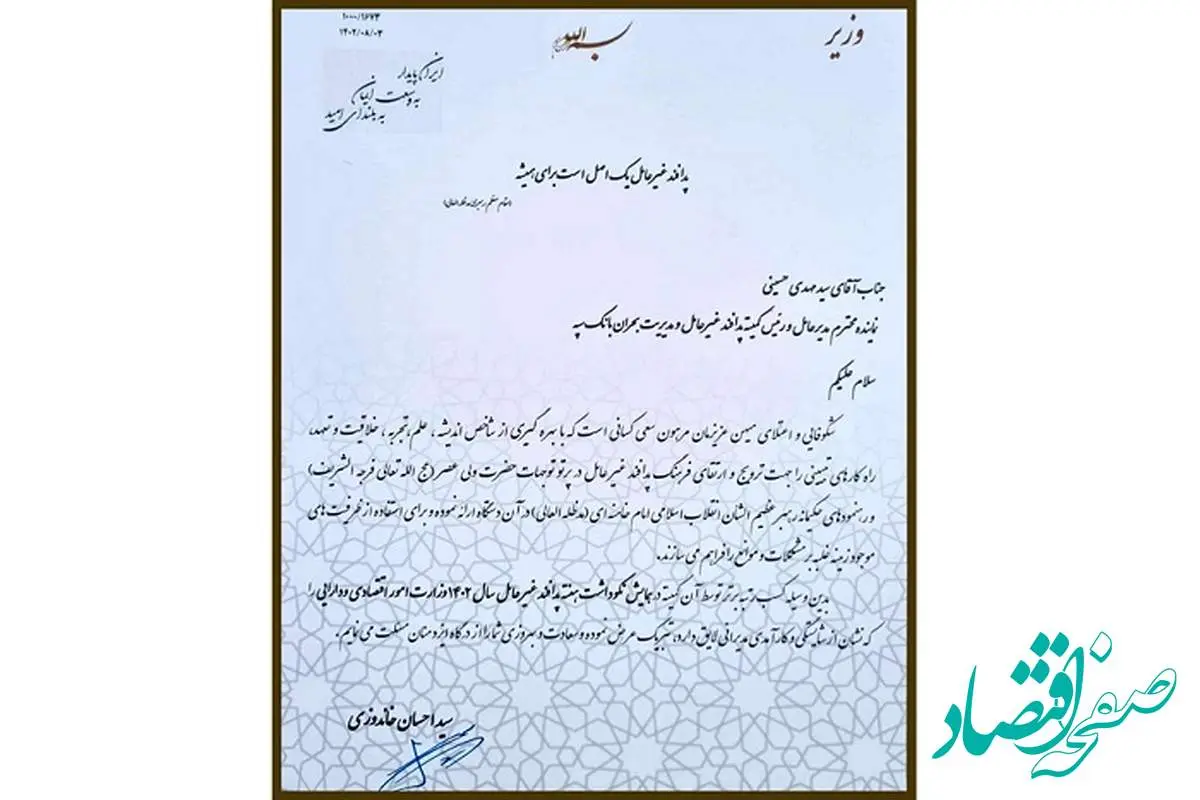 وزیر
بسم الله
۱۰۰۰/۱۶۷۳
۱۴۰۲/۰۸/۰۳
ایران پایدار
به وسعت ایمان
به بلندای امید
پدافند غیرعامل یک اصل است برای همیشه
(مقام معظم رهبری مدظله العالی)
جناب آقای سید مهدی حسینی
نماینده محترم مدیرعامل و رئیس کمیته پدافند غیرعامل و مدیریت بحران بانک سپه
سلام علیکم
شکوفایی و اعتلای میهن عزیزمان مرهون سعی کسانی است که با بهره گیری از شاخص اندیشه، علم، تجربه، خلاقیت و تعهد،
راه کارهای تبیینی را جهت ترویج و ارتقای فرهنگ پدافند غیرعامل در پرتو توجهات حضرت ولی عصر (عج الله تعالی فرجه الشریف)
و رهنمودهای حکیمانه رهبر عظیم الشان انقلاب اسلامی امام خامنه ای (مدظله العالی) در آن دستگاه ارائه نموده و برای استفاده از ظرفیت های
موجود زمینه غلبه بر مشکلات و موانع را فراهم می سازند.
بدین وسیله کسب رتبه برتر توسط آن کمیته در همایش نکوداشت هفته پدافند غیرعامل سال ۱۴۰۲ وزارت امور اقتصادی و دارایی را
که نشان از شایستگی و کارآمدی مدیرانی لایق دارد، تبریک عرض نموده و سعادت و بهروزی شما را از درگاه ایزد منان مسئلت می نمایم.
سید احسان خاندوزی
صفحه اقتصاد